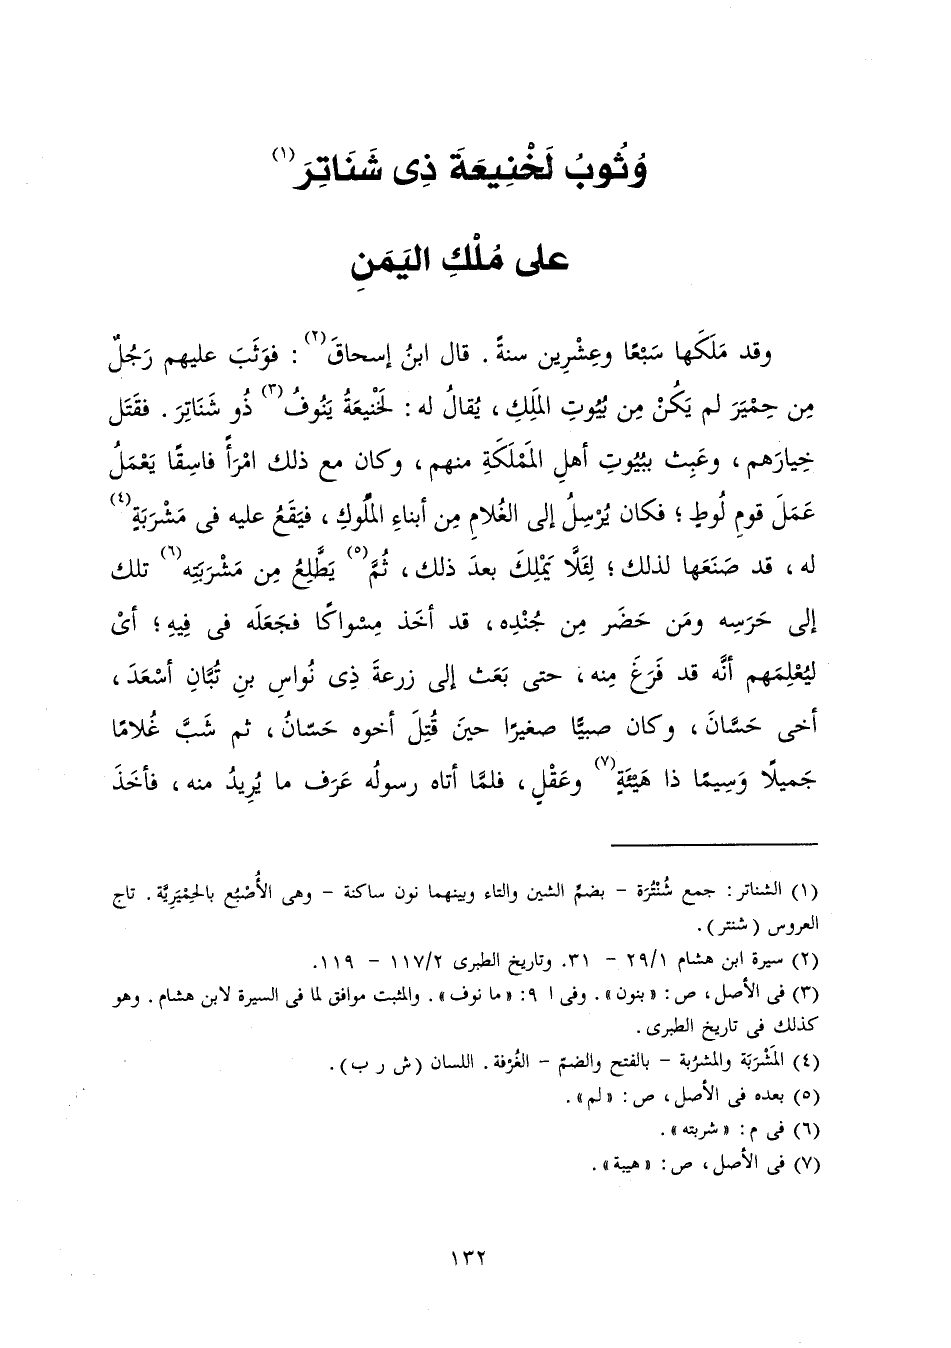 وُثُوبُ لَخْنِيعَةَ ذِى شَنَاتِرَ(١)
على مُلْكِ اليَمَنِ
وقد مَلَكَها سَبْعًا وعِشْرِين سنةً . قال ابنُ إسحاقَ(٢) : فوَثَبَ عليهم رَجُلٌ
مِن حِمْيَرَ لم يَكُنْ مِن بُيُوتِ المَلِكِ ، يُقالُ له : لَخْنِيعَةُ يَنُوفُ(٣) ذُو شَنَاتِرَ . فقَتَل
خِيارَهم ، وعَبِث ببُيُوتِ أهلِ المَمْلَكَةِ منهم ، وكان مع ذلك امْرَأً فاسِقًا يَعْمَلُ
عَمَلَ قومِ لُوطٍ ؛ فكان يُرْسِلُ إلى الغُلامِ مِن أبناءِ المُلُوكِ ، فيَقَعُ عليه فى مَشْرَبَةٍ(٤)
له ، قد صَنَعَها لذلك ؛ لِئَلَّا يَمْلِكَ بعدَ ذلك ، ثُمَّ(٥) يَطَّلِعُ مِن مَشْرَبَتِه(٦) تلك
إلى حَرَسِه ومَن حَضَر مِن جُنْدِه ، قد أخَذ مِسْواكًا فجَعَلَه فى فِيهِ ؛ أىْ
ليُعْلِمَهم أنَّه قد فَرَغَ مِنه ، حتى بَعَث إلى زرعةَ ذِى نُواسِ بنِ تُبَّانِ أسْعَدَ ،
أخى حَسَّانَ ، وكان صبيًّا صغيرًا حينَ قُتِلَ أخوه حَسّانُ ، ثم شَبَّ غُلامًا
جَميلًا وَسِيمًا ذا هَيْئَةٍ(٧) وعَقْلٍ ، فلمَّا أتاه رسولُه عَرَف ما يُرِيدُ منه ، فأخَذَ
(١) الشناتر : جمع شُنْتُرَة - بضمِّ الشين والتاء وبينهما نون ساكنة - وهى الأُصْبُع بالحِمْيَرِيَّة . تاج
العروس ( شنتر ) .
(٢) سيرة ابن هشام ٢٩/١ - ٣١. وتاريخ الطبرى ١١٧/٢ - ١١٩.
(٣) فى الأصل ، ص : « بنون » . وفى ا ٩: « ما نوف » . والمثبت موافق لما فى السيرة لابن هشام . وهو
كذلك فى تاريخ الطبرى .
(٤) المَشْرَبَة والمشرُبة - بالفتح والضمّ - الغُرْفة . اللسان ( ش ر ب ) .
(٥) بعده فى الأصل ، ص : « لم » .
(٦) فى م : « شربته » .
(٧) فى الأصل ، ص : « هيبة » .
١٣٢